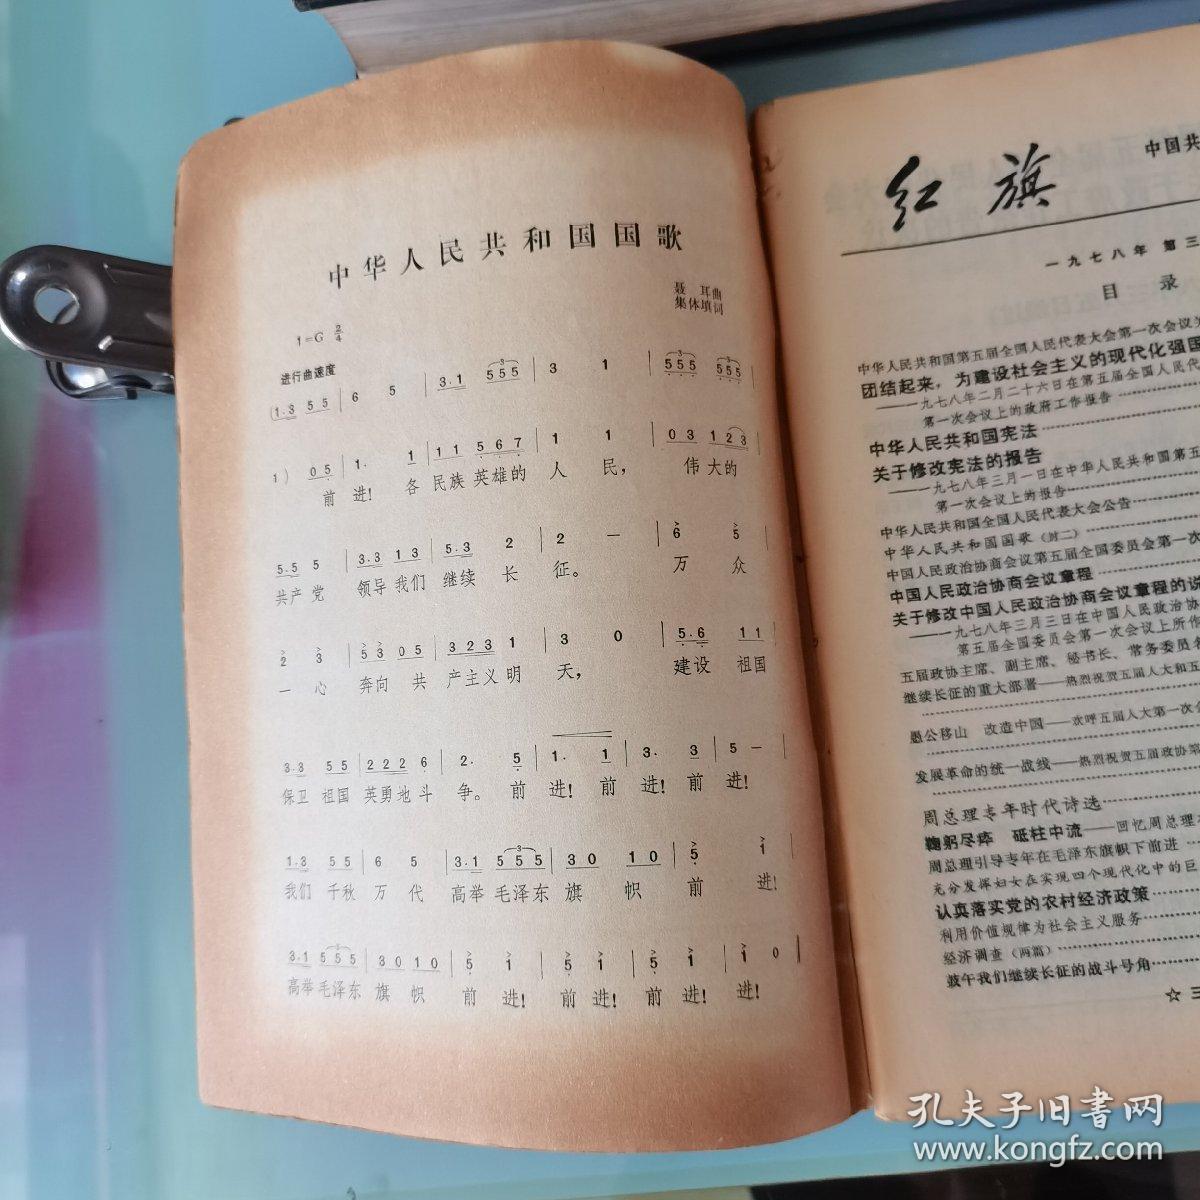 中华人民共和国国歌
聂耳曲
集体填词
1=G 2/4
进行曲速度
前进! 各民族英雄的人民, 伟大的
共产党 领导我们继续长征。 万众
一心 奔向共产主义明天, 建设祖国
保卫祖国英勇地斗争。 前进! 前进! 前进!
我们千秋万代 高举毛泽东旗帜 前进!
高举毛泽东旗帜 前进! 前进! 前进! 进!
红旗
中国共
一九七八年 第三
目录
中华人民共和国第五届全国人民代表大会第一次会议
团结起来,为建设社会主义的现代化强国
——一九七八年二月二十六日在第五届全国人民代
第一次会议上的政府工作报告
中华人民共和国宪法
关于修改宪法的报告
——一九七八年三月一日在中华人民共和国第五
第一次会议上的报告
中华人民共和国全国人民代表大会公告
中华人民共和国国歌(封二)
中国人民政治协商会议第五届全国委员会第一次
中国人民政治协商会议章程
关于修改中国人民政治协商会议章程的说
——一九七八年三月三日在中国人民政治协
第五届全国委员会第一次会议上所作
五届政协主席、副主席、秘书长、常务委员
继续长征的重大部署——热烈祝贺五届人大和五
愚公移山 改造中国——欢呼五届人大第一次
发展革命的统一战线——热烈祝贺五届政协第
周总理青年时代诗选
鞠躬尽瘁 砥柱中流——回忆周总理
周总理引导青年在毛泽东旗帜下前进
充分发挥妇女在实现四个现代化中的巨
认真落实党的农村经济政策
利用价值规律为社会主义服务
经济调查(两篇)
鼓午我们继续长征的战斗号角
☆ 三
孔夫子旧书网
www.kongfz.com